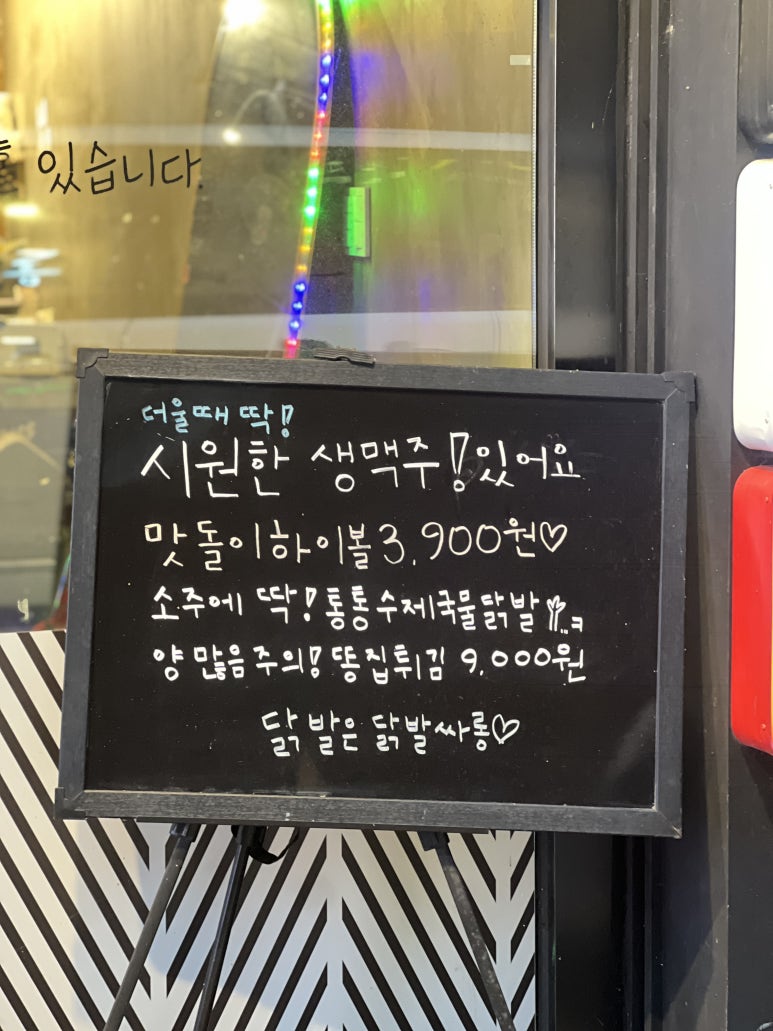 있습니다.
더울때 딱!
시원한 생맥주! 있어요
맛돌이하이볼 3,900원♡
소주에 딱! 통통수제국물닭발
양 많음 주의! 똥집튀김 9,000원
닭발은 닭발싸롱♡